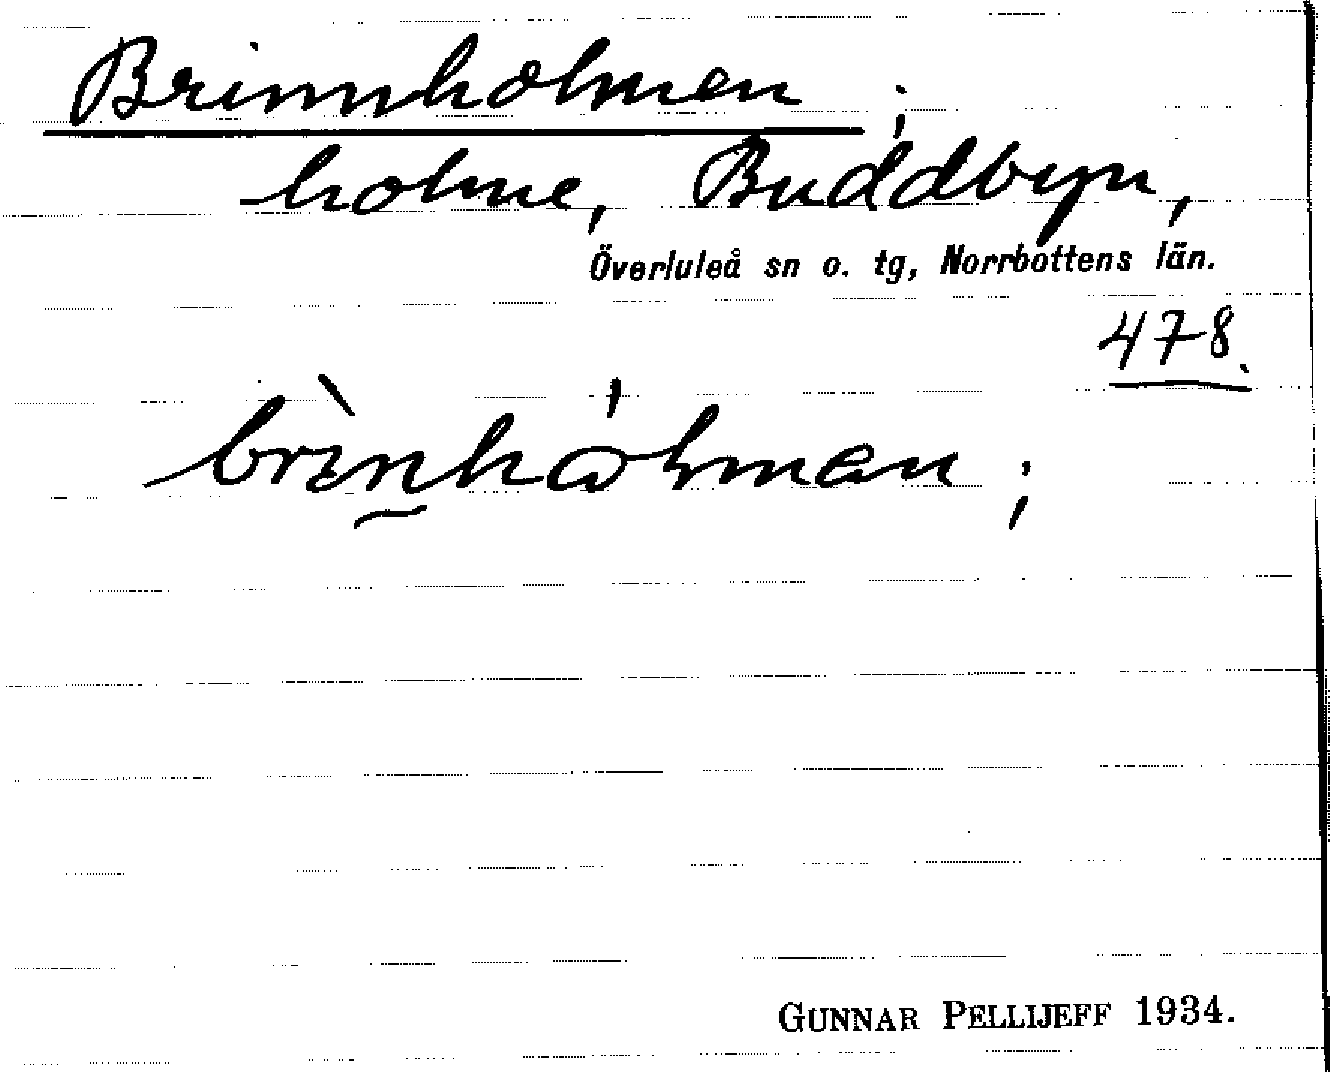 Brinnholmen ;
holme, Buddbyn,
Överluleå sn o. tg, Norrbottens län.
478.
brìn̠hól̍man ;
GUNNAR PELLIJEFF 1934.